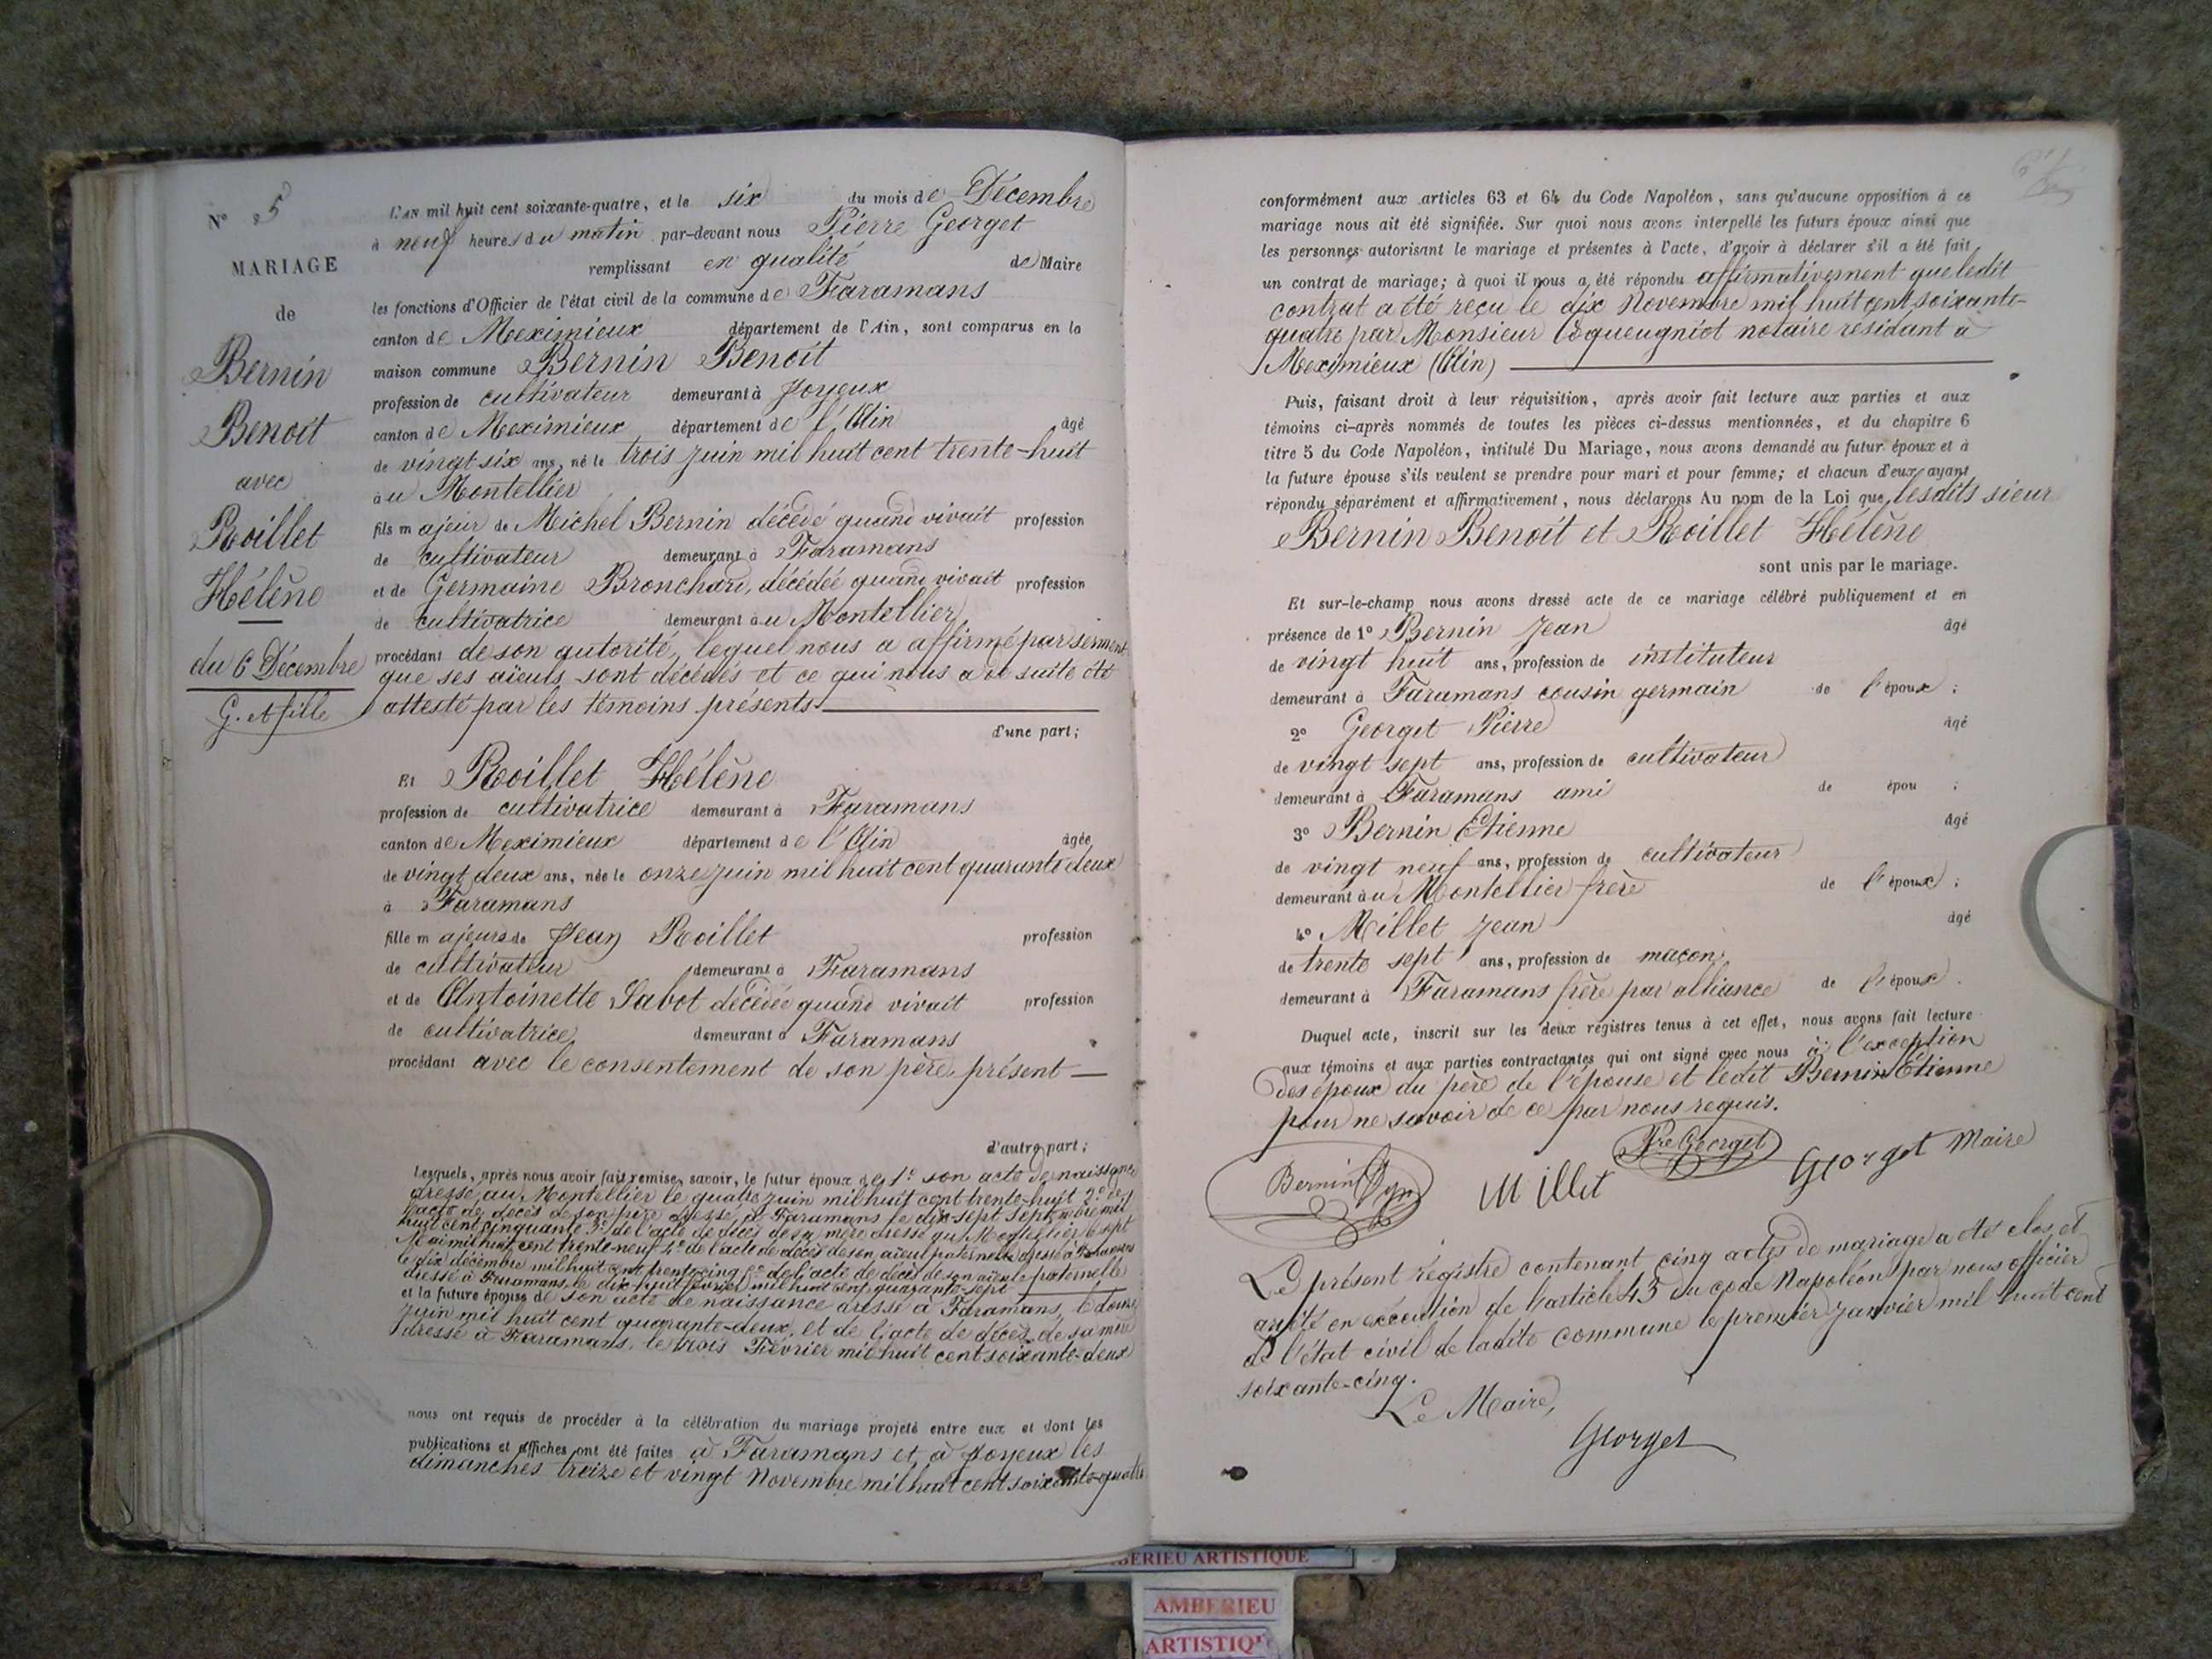 N° 5
MARIAGE
de
Bernin
Benoit
avec
Roillet
Hélène
du 6 Décembre
G. et fille
L'AN mil huit cent soixante-quatre, et le six du mois de Décembre
à neuf heures du matin par-devant nous Pierre Georget
remplissant en qualité de Maire
les fonctions d'Officier de l'état civil de la commune de Faramans
canton de Meximieux département de l'Ain, sont comparus en la
maison commune Bernin Benoit
profession de cultivateur demeurant à Joyeux
canton de Meximieux département de l'Ain âgé
de vingt-six ans, né le trois juin mil huit cent trente-huit
à u Montellier
fils majeur de Michel Bernin décédé quand vivait profession
de cultivateur demeurant à Faramans
et de Germaine Bronchard, décédée quand vivait profession
de cultivatrice demeurant à u Montellier
procédant de son autorité, lequel nous a affirmé par serment
que ses aïeuls sont décédés et ce qui nous a de suite été
attesté par les témoins présents
d'une part;
Et Roillet Hélène
profession de cultivatrice demeurant à Faramans
canton de Meximieux département de l'Ain âgée
de vingt deux ans, née le onze juin mil huit cent quarante deux
à Faramans
fille majeure de Jean Roillet profession
de cultivateur demeurant à Faramans
et de Antoinette Sabot décédée quand vivait profession
de cultivatrice demeurant à Faramans
procédant avec le consentement de son père présent
d'autre part;
Lesquels, après nous avoir fait remise, savoir, le futur époux de 1° son acte de naissance
dressé au Montellier le quatre juin mil huit cent trente-huit 2° de
l'acte de décès de son père dressé à Faramans le dix-sept septembre mil
huit cent cinquante 3° de l'acte de décès de sa mère dressé au Montellier le sept
Mai mil huit cent trente-neuf 4° de l'acte de décès de son aïeul paternel dressé à Faramans
le dix décembre mil huit cent trente cinq 5° de l'acte de décès de son aïeule paternelle
dressé à Faramans le dix-huit février mil huit cent quarante-sept
et la future épouse de son acte de naissance dressé à Faramans, le douze
juin mil huit cent quarante-deux, et de l'acte de décès de sa mère
dressé à Faramans, le trois Février mil huit cent soixante-deux
nous ont requis de procéder à la célébration du mariage projeté entre eux et dont les
publications et affiches ont été faites à Faramans et à Joyeux les
dimanches treize et vingt Novembre mil huit cent soixante-quatre
conformément aux articles 63 et 64 du Code Napoléon, sans qu'aucune opposition à ce
mariage nous ait été signifiée. Sur quoi nous avons interpellé les futurs époux ainsi que
les personnes autorisant le mariage et présentes à l'acte, d'avoir à déclarer s'il a été fait
un contrat de mariage; à quoi il nous a été répondu affirmativement que ledit
contrat a été reçu le dix Novembre mil huit cent soixante-
quatre par Monsieur Coqueugniot notaire résidant à
Meximieux (Ain)
Puis, faisant droit à leur réquisition, après avoir fait lecture aux parties et aux
témoins ci-après nommés de toutes les pièces ci-dessus mentionnées, et du chapitre 6
titre 5 du Code Napoléon, intitulé Du Mariage, nous avons demandé au futur époux et à
la future épouse s'ils veulent se prendre pour mari et pour femme; et chacun d'eux ayant
répondu séparément et affirmativement, nous déclarons Au nom de la Loi que lesdits sieur
Bernin Benoit et Roillet Hélène
sont unis par le mariage.
Et sur-le-champ nous avons dressé acte de ce mariage célébré publiquement et en
présence de 1° Bernin Jean âgé
de vingt huit ans, profession de instituteur
demeurant à Faramans cousin germain de l'époux;
2° Georget Pierre âgé
de vingt sept ans, profession de cultivateur
demeurant à Faramans ami de épou;
3° Bernin Etienne âgé
de vingt neuf ans, profession de cultivateur
demeurant à u Montellier frère de l'époux;
4° Millet Jean âgé
de trente sept ans, profession de maçon
demeurant à Faramans frère par alliance de l'époux.
Duquel acte, inscrit sur les deux registres tenus à cet effet, nous avons fait lecture
aux témoins et aux parties contractantes qui ont signé avec nous à l'exception
des époux du père de l'épouse et ledit Bernin Etienne
pour ne savoir de ce par nous requis.
Bernin Millet Pre Georget Georget Maire
Le présent Registre contenant cinq actes de mariage a été clos et
arrêté en exécution de l'article 43 du code Napoléon par nous officier
de l'état civil de ladite commune le premier janvier mil huit cent
soixante-cinq.
Le Maire,
Georget
AMBERIEU ARTISTIQUE
AMBERIEU
ARTISTIQU